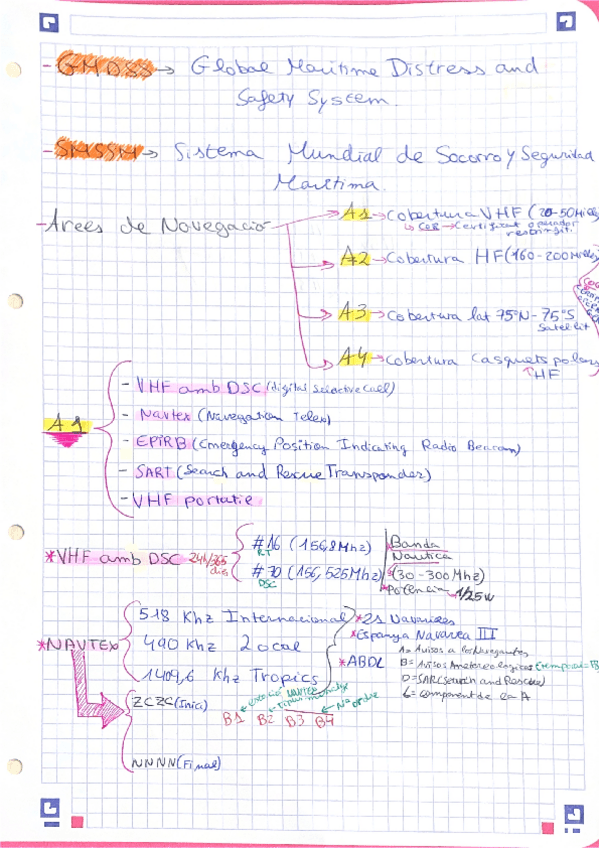 - GMDSS → Global Maritime Distress and
Safety System.
- SMSSM → Sistema Mundial de Socorro y Seguridad
Marítima.
- Àrees de Navegació
A1 → Cobertura VHF (20-50 Milles
↳ CER → Certificat operador
restringit.
A2 → Cobertura HF (160-200 Milles)
A3 → Cobertura lat 75°N - 75°S
Satel·lit
A4 → Cobertura Casquets polars
↑ HF
A1
- VHF amb DSC (digital selective call)
- Navtex (Navegation Telex)
- EPiRB (Emergency Position Indicating Radio Beacon)
- SART (Search and Rescue Transponder)
- VHF portatil
* VHF amb DSC 24h/365
dies
#16 (156,8 Mhz)
RT
#70 (156,525 Mhz)
DSC
* Banda
Nautica
(30-300 Mhz)
* Potencia 1/25w
* NAVTEX
518 Khz Internacional
490 Khz Local
1409,6 Khz Tropics
* 21 Navarees
* Espanya Navarea III
* ABDL
A = Avisos a los Navegantes
B = Avisos Ametereologicos
D = SAR (search and Rescue)
L = component de la A
ZCZC (Inici)
B1 B2 B3 B4
Nº ordre
NNNN (Final)